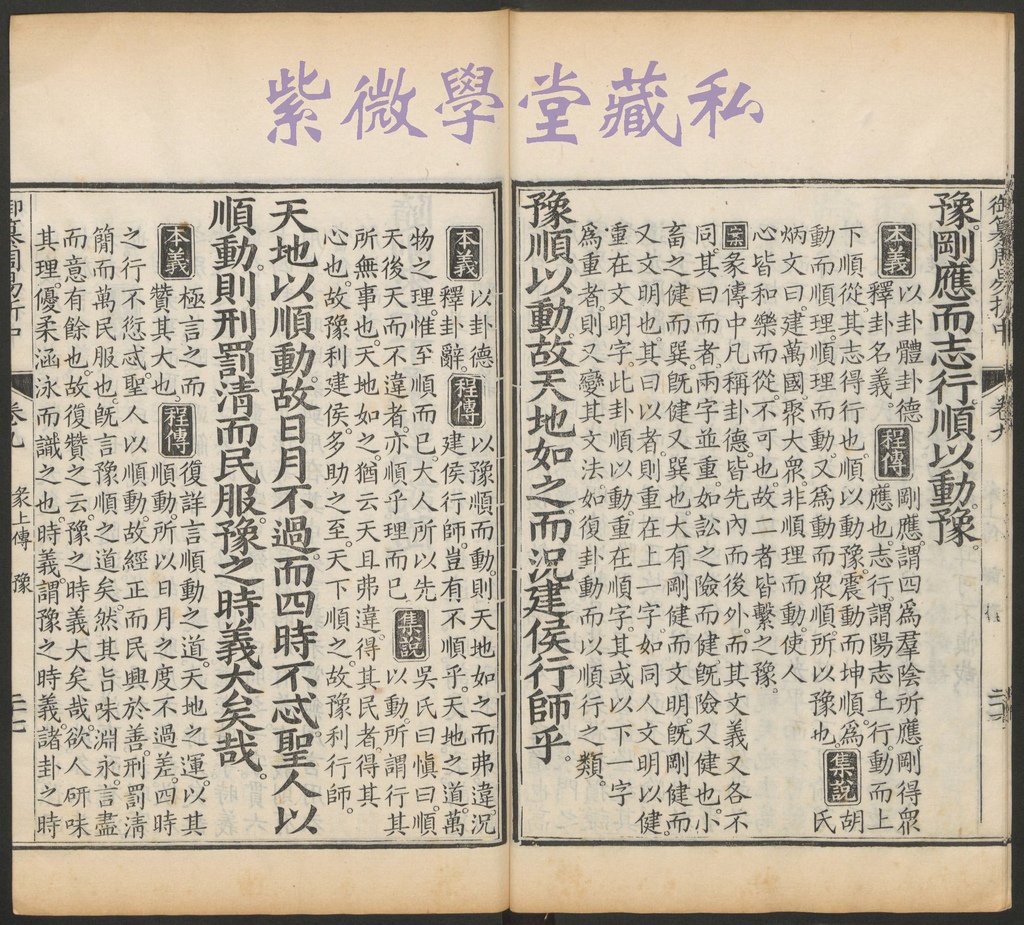 紫微學堂藏私
豫。剛應而志行。順以動。豫。
本義
以卦體卦德
釋卦名義。
程傳
剛應。謂四爲羣陰所應。剛得衆
應也。志行。謂陽志上行。動而上
下順從。其志得行也。順以動豫。震動而坤順。爲
動而順理。順理而動。又爲動而衆順。所以豫也。
集說
胡
氏
炳文曰。建萬國。聚大衆。非順理而動。使人
心皆和樂而從。不可也。故二者皆繫之豫。
案
彖傳中凡稱卦德。皆先內而後外。而其文義又各不
同。其曰而者。兩字並重。如訟之險而健。旣險又健也。小
畜之健而巽。旣健又巽也。大有剛健而文明。旣剛健而
又文明也。其曰以者。則重在上一字。如同人文明以健。
重在文明字。此卦順以動。重在順字。其或以下一字
爲重者。則又變其文法。如復卦動而以順行之類。
豫順以動。故天地如之。而況建侯行師乎。
本義
以卦德
釋卦辭。
程傳
以豫順而動。則天地如之而弗違。況
建侯行師。豈有不順乎。天地之道。萬
物之理。惟至順而已。大人所以先
天後天而不違者。亦順乎理而已
集說
吳氏曰愼曰。順
以動。所謂行其
所無事也。天地如之。猶云天且弗違。得其民者。得其
心也。故豫利建侯。多助之至。天下順之。故豫利行師。
天地以順動。故日月不過。而四時不忒。聖人以
順動。則刑罰清而民服。豫之時義大矣哉。
本義
極言之而
贊其大也。
程傳
復詳言順動之道。天地之運。以其
順動。所以日月之度不過差。四時
之行不愆忒。聖人以順動。故經正而民興於善。刑罰清
簡而萬民服也。旣言豫順之道矣。然其旨味淵永。言盡
而意有餘也。故復贊之云。豫之時義大矣哉。欲人研味
其理。優柔涵泳而識之也。時義。謂豫之時義。諸卦之時
卷九
彖上傳
豫
二七